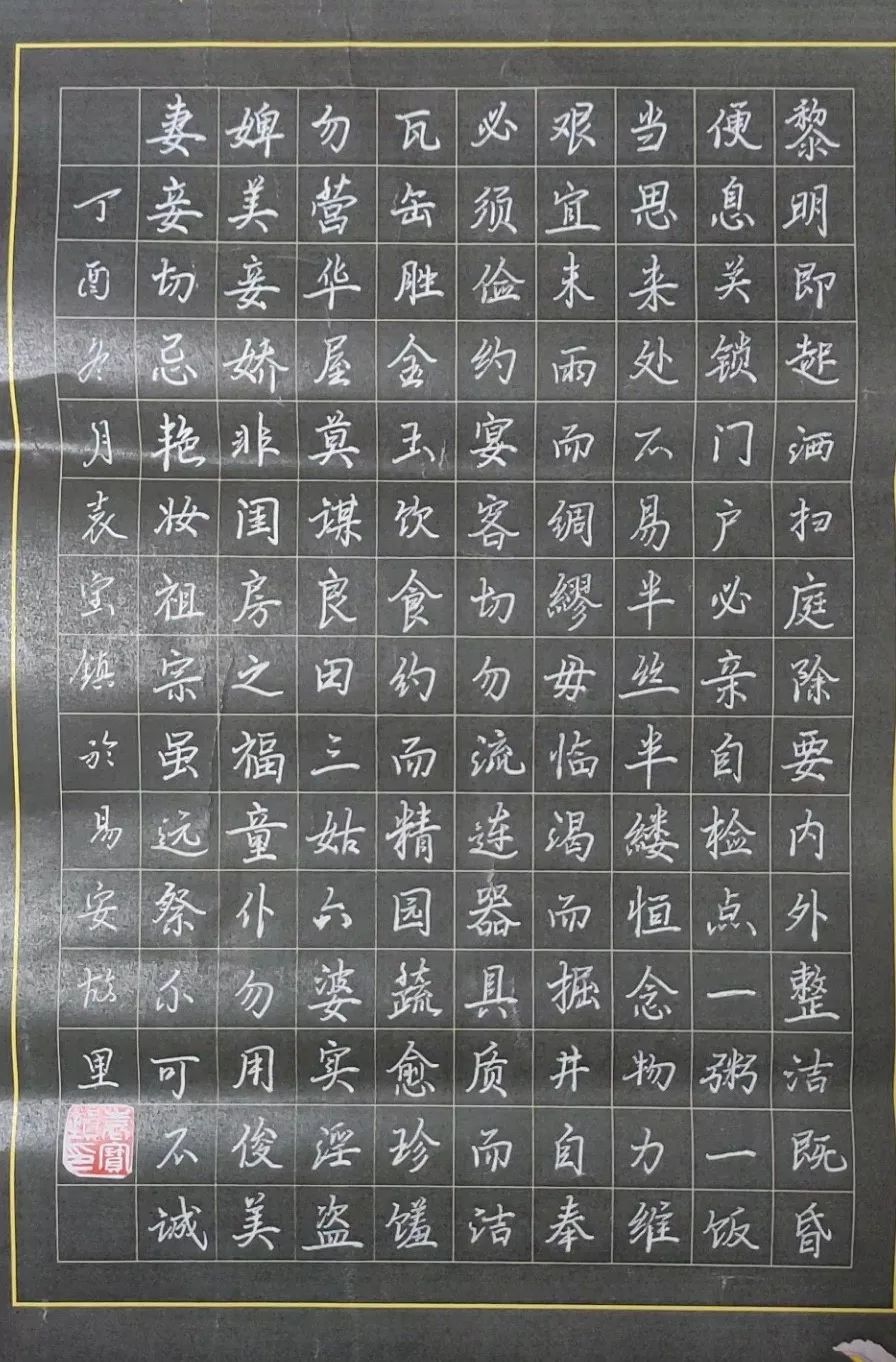 黎明即起洒扫庭除要内外整洁既昏
便息关锁门户必亲自检点一粥一饭
当思来处不易半丝半缕恒念物力维
艰宜未雨而绸缪毋临渴而掘井自奉
必须俭约宴客切勿流连器具质而洁
瓦缶胜金玉饮食约而精园蔬愈珍馐
勿营华屋莫谋良田三姑六婆实淫盗
婢美妾娇非闺房之福童仆勿用俊美
妻妾切忌艳妆祖宗虽远祭不可不诚
丁酉冬月袁宝镇於易安故里
袁寶鎮印